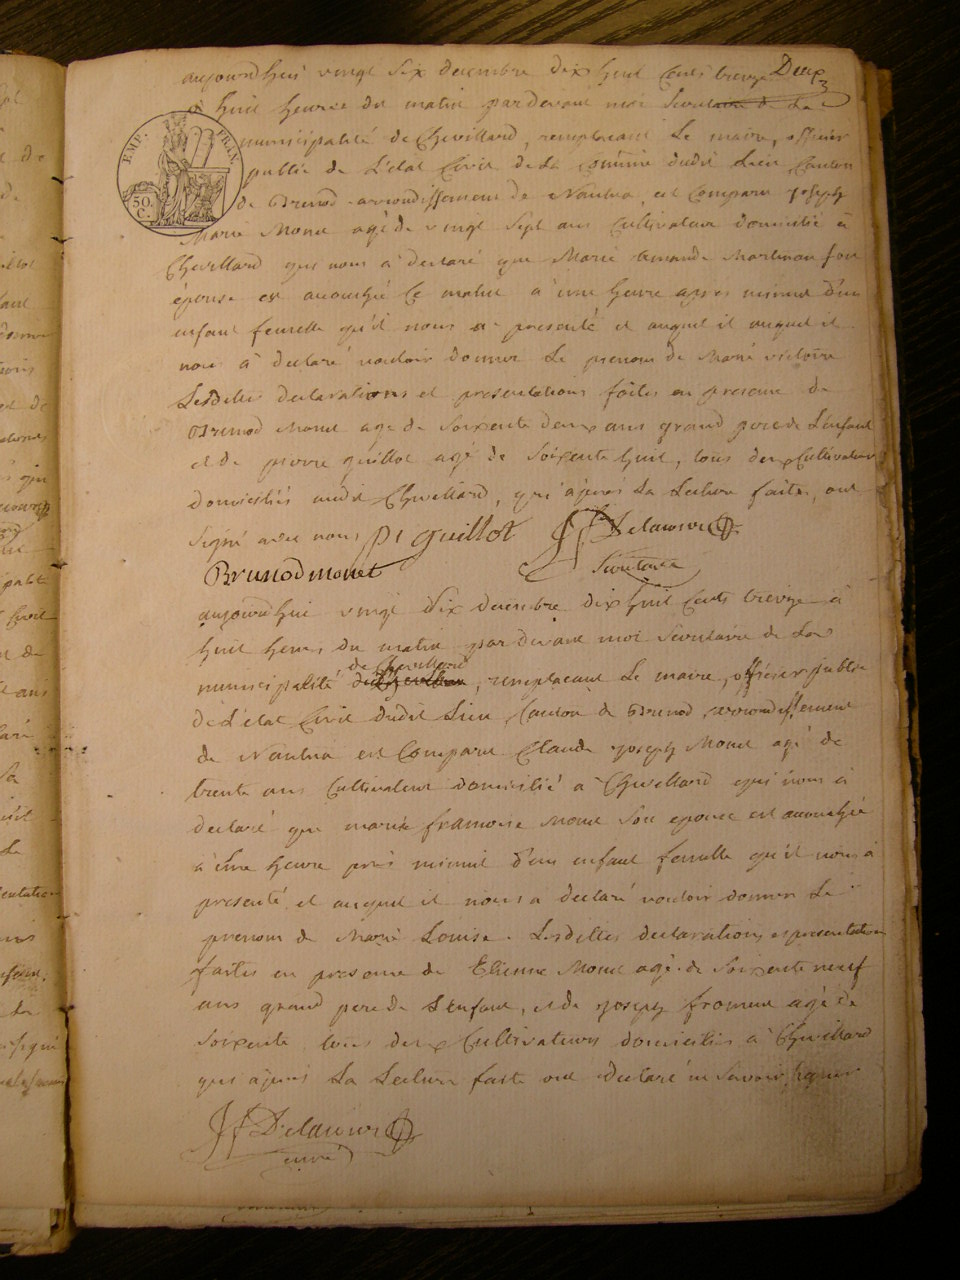 aujourd'hui vingt six decembre dix huit cents treize Deux
à huit heures du matin pardevant moi Secretaire de La
municipalité de Chevillard, remplacant Le maire, officier
EMP. FRAN.
50. C.
public de L'état Civil de La Commune dudit Lieu Canton
de Brenod arrondissement de Nantua, est Comparu joseph
Marie Monet agé de vingt Sept ans Cultivateur domicilié à
Chevillard qui nous à declaré que Marie Martinan son
épouse est accouchée Ce matin à une heure apres minuit d'un
enfant femelle qu'il nous a presenté et auquel il auquel il
nous à declaré vouloir donner Le prenom de Marie victoire
Lesdittes declarations et presentations faites en presence de
Brunod Monet agé de Soixente deux ans grand pere de L'enfant
et de pierre guillot agé de Soixente huit, tous deux Cultivateurs
domiciliés audit Chevillard, qui àprès La Lecture faite, ont
Signé avec nous pi guillot Delacour
Brunod monet Secretaire
aujourd'hui vingt Six decembre dix huit Cents treize à
huit heures du matin pardevant moi Secretaire de La
de Chevillard
municipalité, remplacant Le maire, officier public
de L'état Civil dudit Lieu, Canton de Brenod, arrondissement
de Nantua est Comparu Claude joseph Monet agé de
trente ans Cultivateur domicilié à Chevillard qui nous à
declaré que marie francoise Monet Son epouse est accouchée
à une heure près minuit d'un enfant femelle qu'il nous à
presenté et auquel il nous a declaré vouloir donner Le
prenom de Marie Louise. Lesdittes declarations et presentations
faites en presence de Etienne Monet agé de Soixente neuf
ans grand pere de L'enfant, et de joseph froment agé de
Soixente tous deux Cultivateurs domiciliés à Chevillard
qui àprès La Lecture faite ont declaré ne Savoir Signer
Delacour